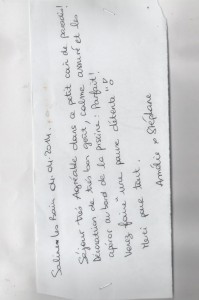 Salins les Bains 04.04.2014.
Séjour très Agréable dans ce petit coin de paradis!
Décoration de très bon goût, calme assuré et les
apéros au bord de la piscine: Parfait!
Venez faire une pause détente
Merci pour tout.
Amélie & Stéphane